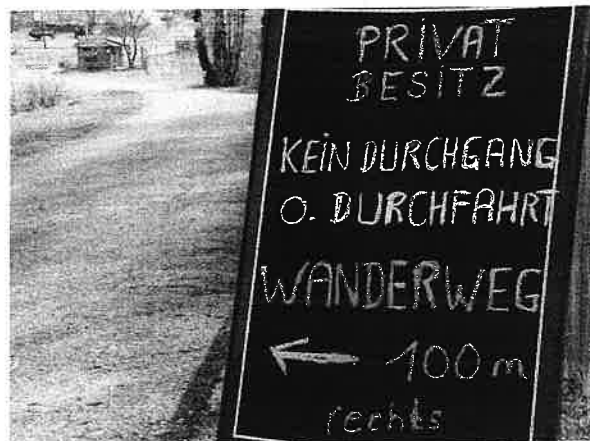 PRiVAT
BESiTZ
KEiN DURCHGANG
O. DURCHFAHRT
WANDERWEG
← 100 m
rechts